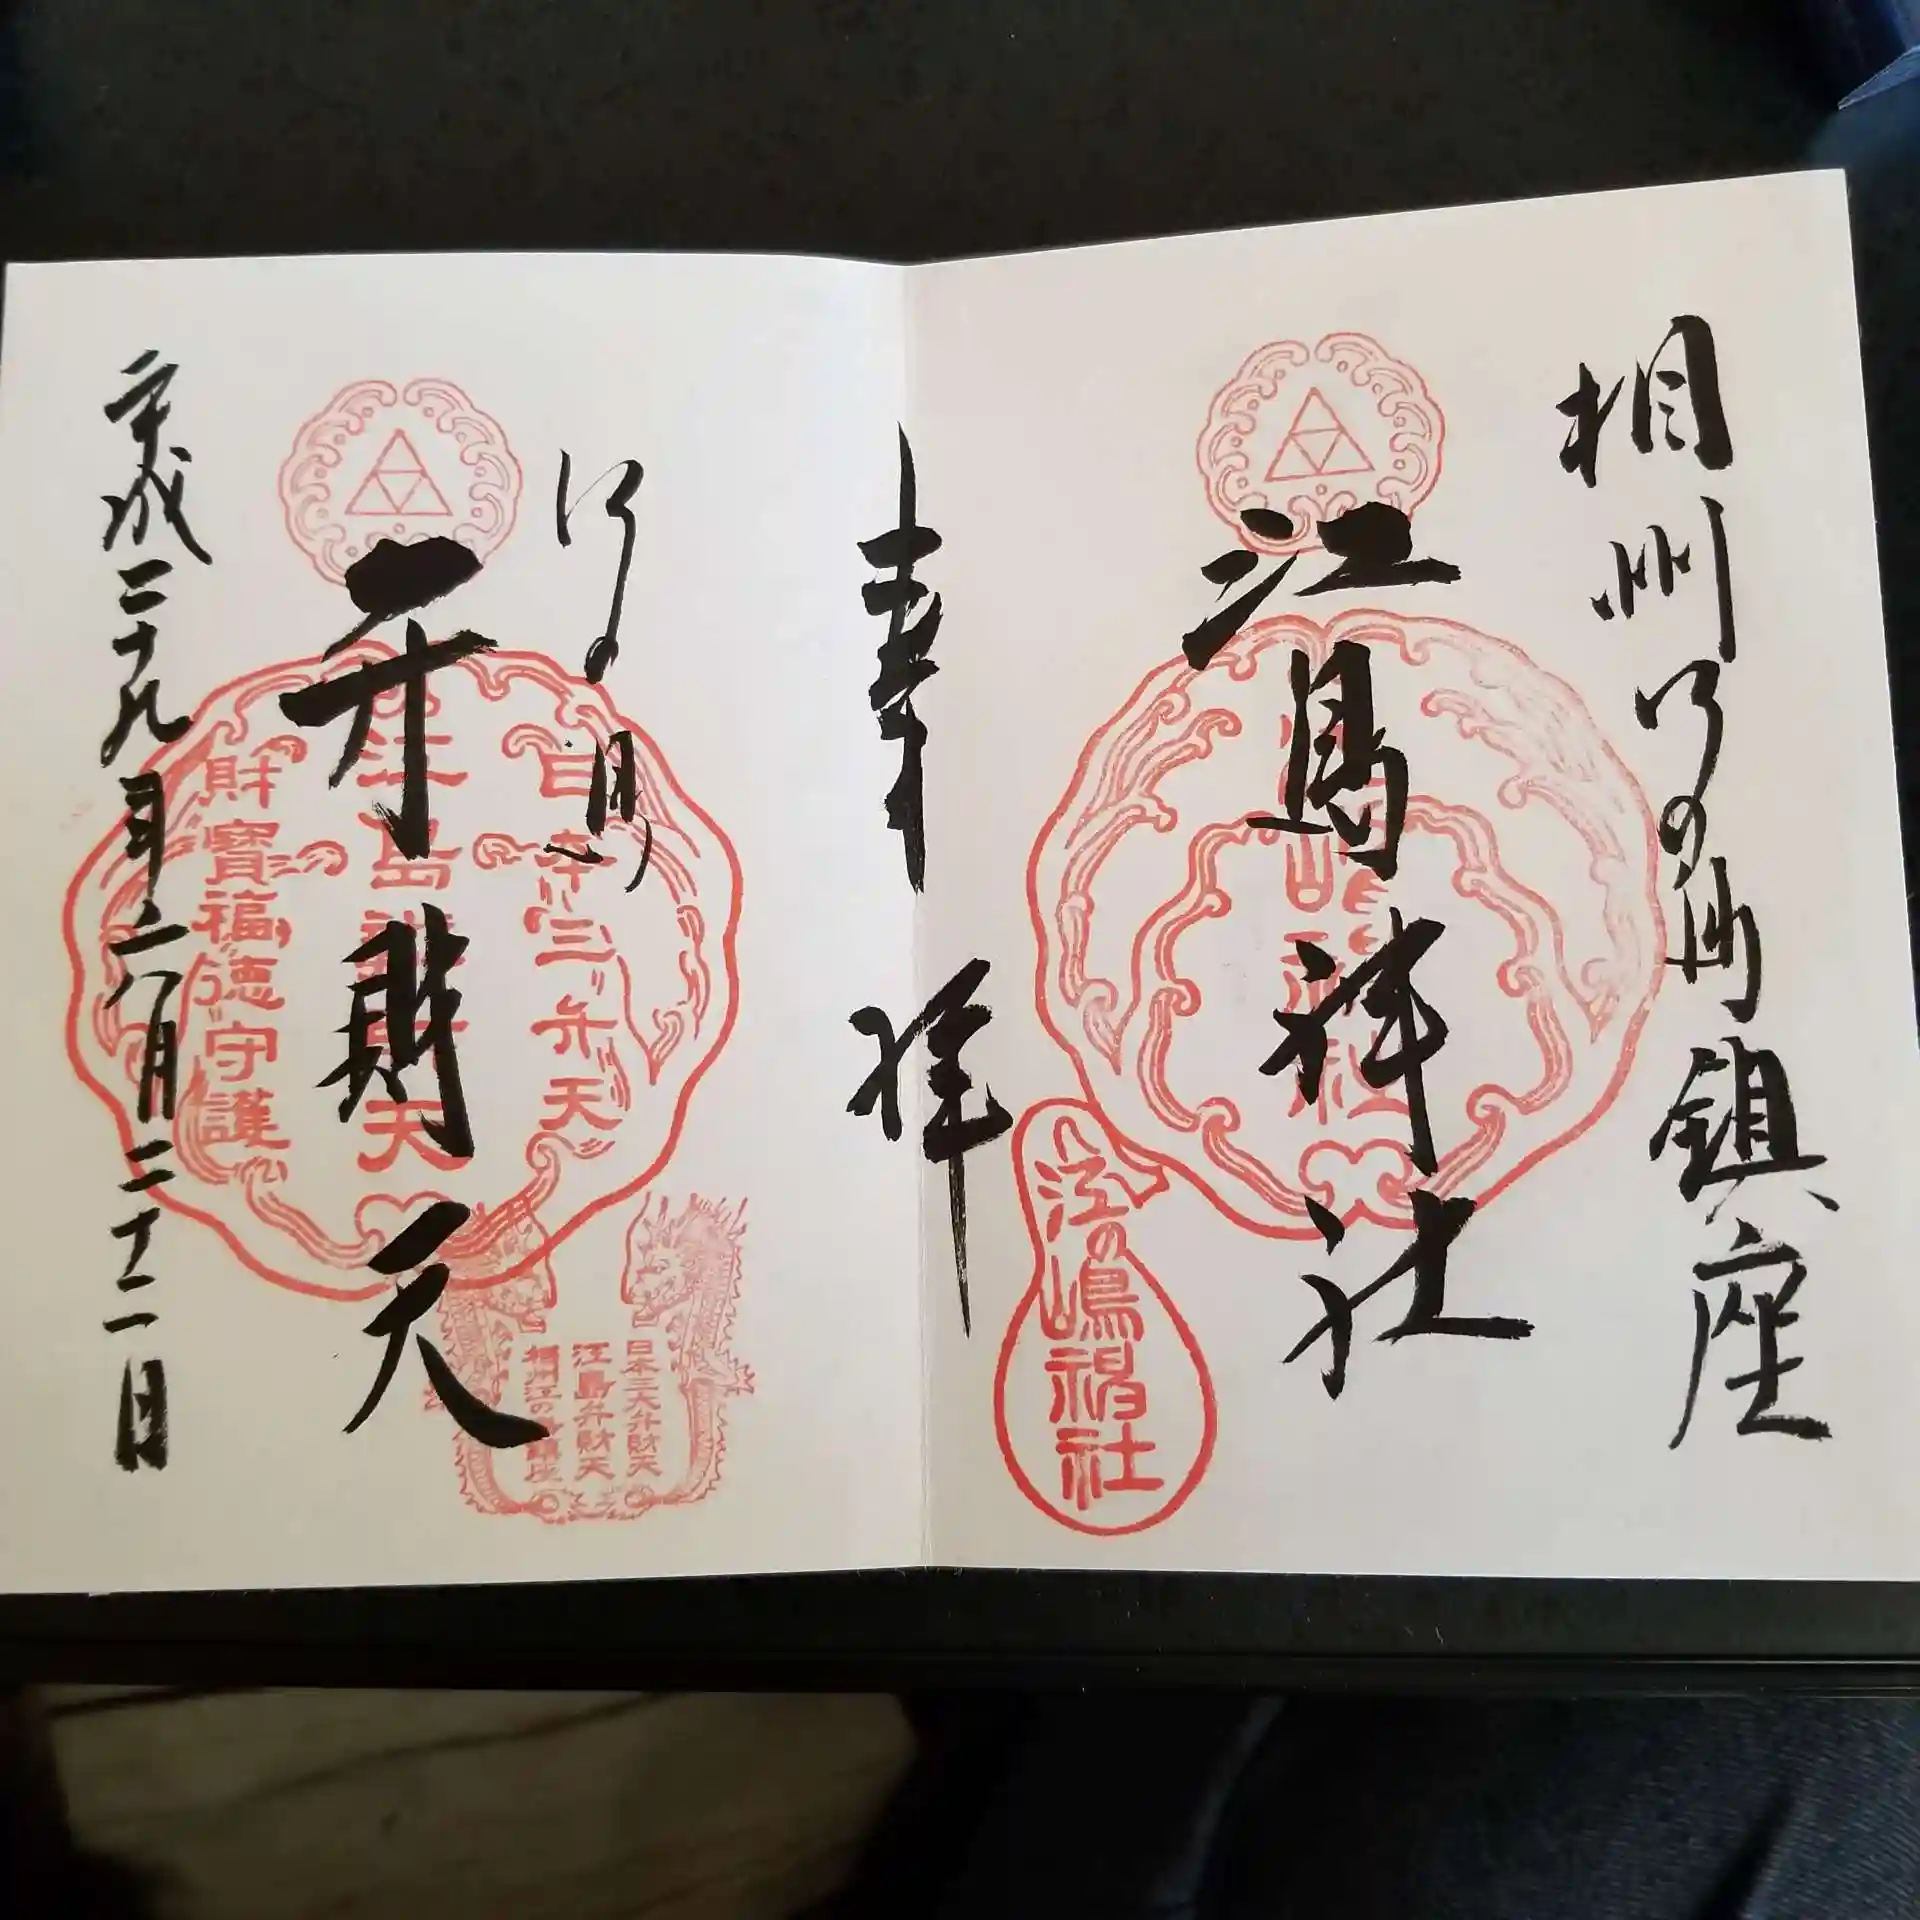 相州江の島鎮座
江島神社
江の嶋神社
奉拝
江の島
弁財天
日本三弁天
江島辨財天
財寶福徳守護
日本三大弁財天
江島弁財天
相州江の島鎮座
平成二十九年二八月二十二日